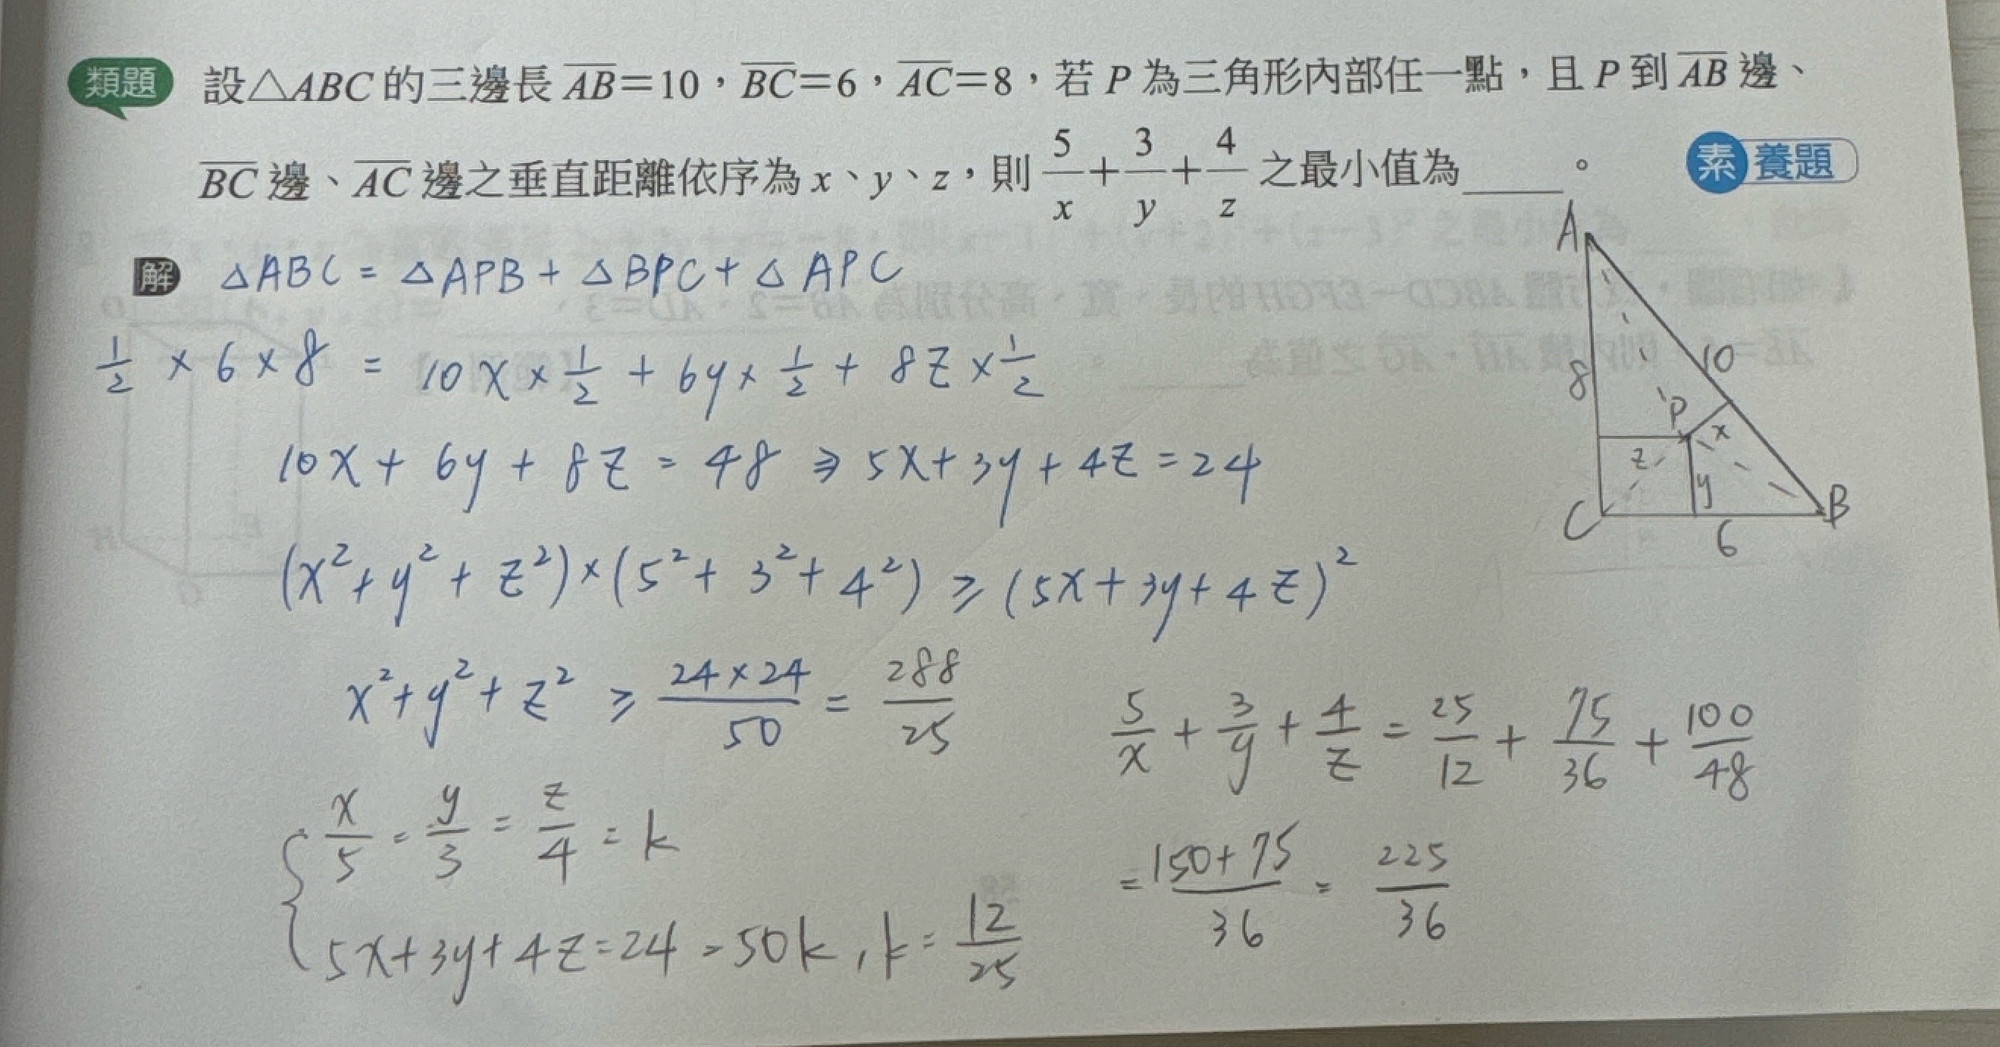 類題 設△ABC的三邊長 AB=10，BC=6，AC=8，若 P 為三角形內部任一點，且 P 到 AB 邊、
BC 邊、AC 邊之垂直距離依序為 x、y、z，則 5/x + 3/y + 4/z 之最小值為____。 素養題
解 △ABC = △APB + △BPC + △APC
1/2 × 6 × 8 = 10x × 1/2 + 6y × 1/2 + 8z × 1/2
10x + 6y + 8z = 48 ⇒ 5x + 3y + 4z = 24
(x² + y² + z²) × (5² + 3² + 4²) ≥ (5x + 3y + 4z)²
x² + y² + z² ≥ 24×24/50 = 288/25
x/5 = y/3 = z/4 = k
5x + 3y + 4z = 24 = 50k , k = 12/25
5/x + 3/y + 4/z = 25/12 + 75/36 + 100/48
= 150+75/36 = 225/36
A
8
10
P
x
z
y
C
6
B